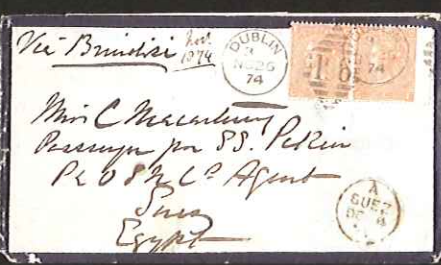 Via Brindisi
1874
DUBLIN
NO 26
74
186
74
Miss C Macartney
Passenger per SS. Pekin
P & O S N Co Agent
Suez
Egypt
A
SUEZ
DE